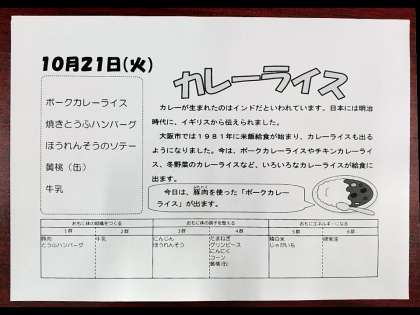 10月21日(火)
カレーライス
ポークカレーライス
焼きとうふハンバーグ
ほうれんそうのソテー
黄桃(缶)
牛乳
カレーが生まれたのはインドだといわれています。日本には明治
時代に、イギリスから伝えられました。
大阪市では1981年に米飯給食が始まり、カレーライスも出る
ようになりました。今は、ポークカレーライスやチキンカレーライ
ス、冬野菜のカレーライスなど、いろいろなカレーライスが給食に
出ます。
今日は、豚肉を使った「ポークカレー
ライス」が出ます。
おもに体の組織をつくる おもに体の調子を整える おもにエネルギーになる
1群 2群 3群 4群 5群 6群
豚肉 牛乳 にんじん たまねぎ 精白米
とうふハンバーグ ほうれんそう グリンピース じゃがいも
にんにく
コーン
黄桃(缶)